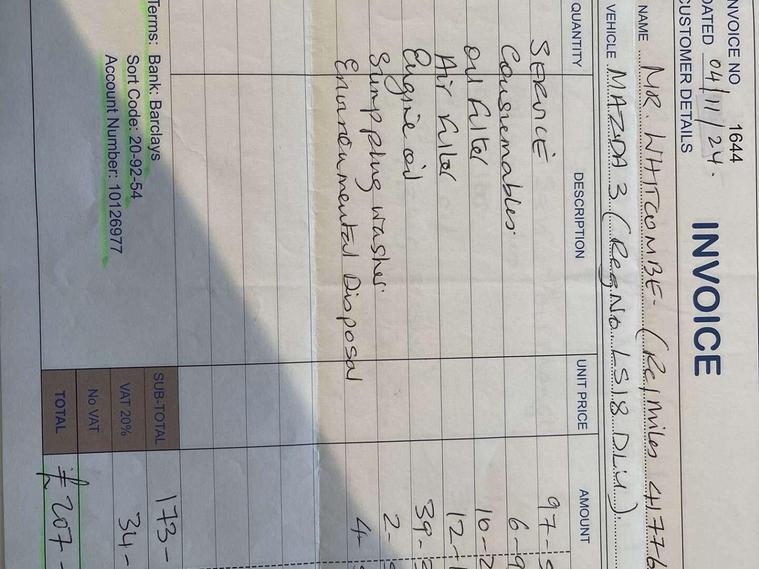 INVOICE NO 1644
INVOICE
DATED 04/11/24.
CUSTOMER DETAILS
NAME MR. WHITCOMBE. (Re/Miles 41776
VEHICLE MAZDA 3 (Reg No LS18 DLU).
QUANTITY DESCRIPTION UNIT PRICE AMOUNT
SERVICE 97-
Consumables 6-9
Oil filter 10-2
Air filter 12-1
Engine oil 39-
Sump plug washer 2-
Enviroumental Disposal 4-
Terms: Bank: Barclays
Sort Code: 20-92-54
Account Number: 10126977
SUB-TOTAL 173-
VAT 20% 34-
No VAT
TOTAL £207-